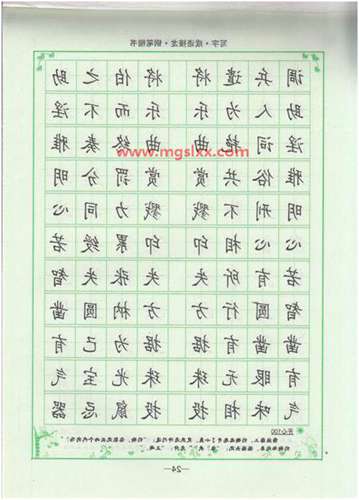 写字·成语接龙·钢笔楷书
调兵遣将 将伯之助
助人为乐 乐而不淫
淫词艳曲 曲终奏雅
www.mgslxx.com
雅俗共赏 赏罚分明
明刑不戮 戮力同心
心心相印 印累绶若
若有所失 失张失智
智圆行方 方枘圆凿
凿凿有据 据为己有
有眼无珠 珠光宝气
气味相投 投鼠忌器
开心100
—24—